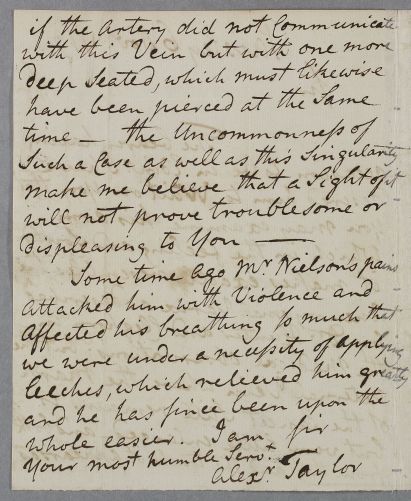 if the Artery did not Communicate
with this Vein but with one more
deep Seated, which must likewise
have been pierced at the Same
time — the Uncommonness of
Such a Case as well as this Singularity
make me believe that a Sight of it
will not prove troublesome or
displeasing to You —
Some time ago Mr. Nielson's pains
attacked him with Violence and
Affected his breathing so much that
we were under a necessity of applying
leeches, which relieved him greatly
and he has since been upon the
whole easier. I am Sir
Your most humble Servt.
Alexr. Taylor